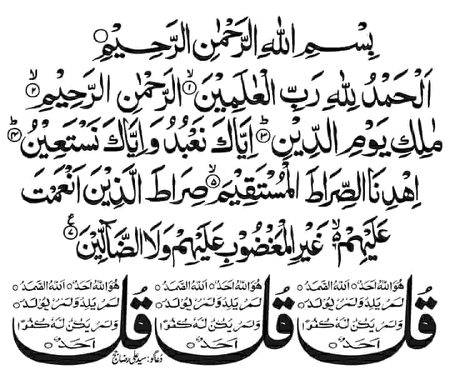 بِسْمِ اللهِ الرَّحْمٰنِ الرَّحِيْمِ ○
اَلْحَمْدُ لِلّٰهِ رَبِّ الْعٰلَمِيْنَ ۙ﴿۱﴾ الرَّحْمٰنِ الرَّحِيْمِ ۙ﴿۲﴾
مٰلِكِ يَوْمِ الدِّيْنِ ؕ﴿۳﴾ اِيَّاكَ نَعْبُدُ وَاِيَّاكَ نَسْتَعِيْنُ ؕ﴿۴﴾
اِهْدِنَا الصِّرَاطَ الْمُسْتَقِيْمَ ۙ﴿۵﴾ صِرَاطَ الَّذِيْنَ اَنْعَمْتَ
عَلَيْهِمْ ۙ۬﴿۶﴾ غَيْرِ الْمَغْضُوْبِ عَلَيْهِمْ وَلَا الضَّآلِّيْنَ ﴿۷﴾
قُلْ
هُوَ اللهُ اَحَدٌ ○ اَللهُ الصَّمَدُ ○
لَمْ يَلِدْ ○ وَلَمْ يُوْلَدْ ○
وَلَمْ يَكُنْ لَّهٗ كُفُوًا
اَحَدٌ ○
قُلْ
هُوَ اللهُ اَحَدٌ ○ اَللهُ الصَّمَدُ ○
لَمْ يَلِدْ ○ وَلَمْ يُوْلَدْ ○
وَلَمْ يَكُنْ لَّهٗ كُفُوًا
اَحَدٌ ○
قُلْ
هُوَ اللهُ اَحَدٌ ○ اَللهُ الصَّمَدُ ○
لَمْ يَلِدْ ○ وَلَمْ يُوْلَدْ ○
وَلَمْ يَكُنْ لَّهٗ كُفُوًا
اَحَدٌ ○
دعاگو: سید علی رضا